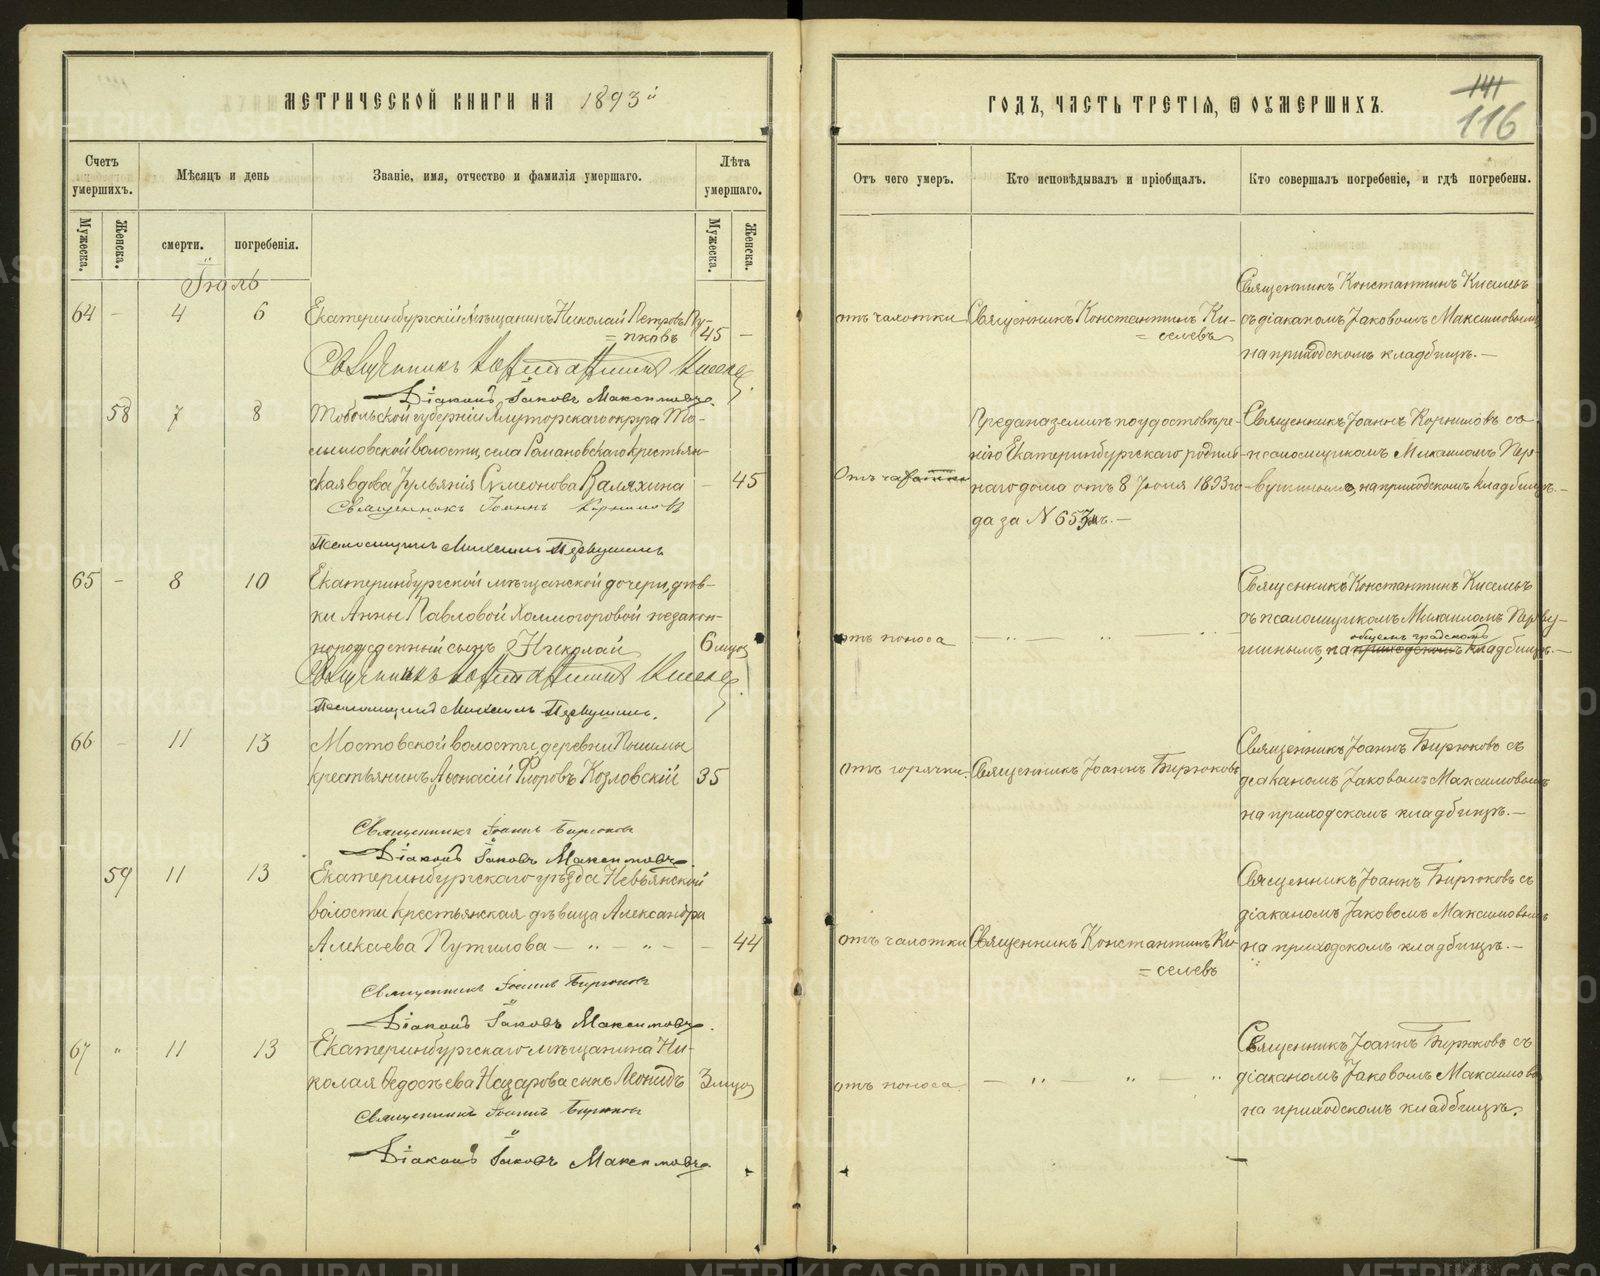 МЕТРИЧЕСКОЙ КНИГИ НА 1893й
ГОДЪ, ЧАСТЬ ТРЕТІЯ, Ѿ ОУМЕРШИХЪ.
141
116
Счетъ умершихъ.
Мѣсяцъ и день
Званіе, имя, отчество и фамилія умершаго.
Лѣта умершаго.
Отъ чего умеръ.
Кто исповѣдывалъ и пріобщалъ.
Кто совершалъ погребеніе, и гдѣ погребены.
Мужеска.
Женска.
смерти.
погребенія.
Мужеска.
Женска.
Іюль
64 - 4 6
Екатеринбургскій мѣщанинъ Николай Петровъ Пу-
=пковъ 45 -
Священникъ Константинъ Киселевъ
Діаконъ Іаковъ Максимовъ.
отъ чахотки
Священникъ Константинъ Ки-
=селевъ
Священникъ Константинъ Киселевъ
съ діакономъ Іаковомъ Максимовымъ
на приходскомъ кладбищѣ. -
58 7 8
Тобольской губерніи Ялуторскаго округа
волости, села Романовскаго крестьян-
ская вдова Іульянія Симеонова Валяхина - 45
Священникъ Іоаннъ Корниловъ
Псаломщикъ Михаилъ Первушинъ
Отъ чахотки
Предана землѣ по удостовѣре-
нію Екатеринбургскаго родиль-
наго дома отъ 8 Іюля 1893 го-
да за N 653мъ. -
Священникъ Іоаннъ Корниловъ съ
псаломщикомъ Михаиломъ Пер-
вушинымъ, на приходскомъ кладбищѣ. -
65 - 8 10
Екатеринбургской мѣщанской дочери, дѣв-
ки Анны Павловой Холмогоровой незакон-
норожденный сынъ Николай 6 мцов
Священникъ Константинъ Киселевъ
Псаломщикъ Михаилъ Первушинъ.
отъ поноса
- " - " - "
Священникъ Константинъ Киселевъ
съ псаломщикомъ Михаиломъ Перву-
общемъ градскомъ
шинымъ, на приходскомъ кладбищѣ. -
66 - 11 13
Мостовской волости, деревни Пышмы
крестьянинъ Афонасій Флоровъ Козловскій 35
Священникъ Іоаннъ Бирюковъ
Діаконъ Іаковъ Максимовъ.
отъ горячки.
Священникъ Іоаннъ Бирюковъ
Священникъ Іоаннъ Бирюковъ съ
діакономъ Іаковомъ Максимовымъ
на приходскомъ кладбищѣ. -
59 11 13
Екатеринбургскаго уѣзда Невьянской
волости крестьянская дѣвица Александра
Алексѣева Путилова - " - " - - 44
Священникъ Іоаннъ Бирюковъ
Діаконъ Іаковъ Максимовъ.
отъ чахотки
Священникъ Константинъ Ки-
=селевъ
Священникъ Іоаннъ Бирюковъ съ
діакономъ Іаковомъ Максимовымъ
на приходскомъ кладбищѣ. -
67 " 11 13
Екатеринбургскаго мѣщанина Ни-
колая Ѳедосѣева Назарова сынъ Леонидъ 3 мцов
Священникъ Іоаннъ Бирюковъ
Діаконъ Іаковъ Максимовъ.
отъ поноса
- " - " - "
Священникъ Іоаннъ Бирюковъ съ
діакономъ Іаковомъ Максимовы
на приходскомъ кладбищѣ.
METRIKI.GASO-URAL.RU